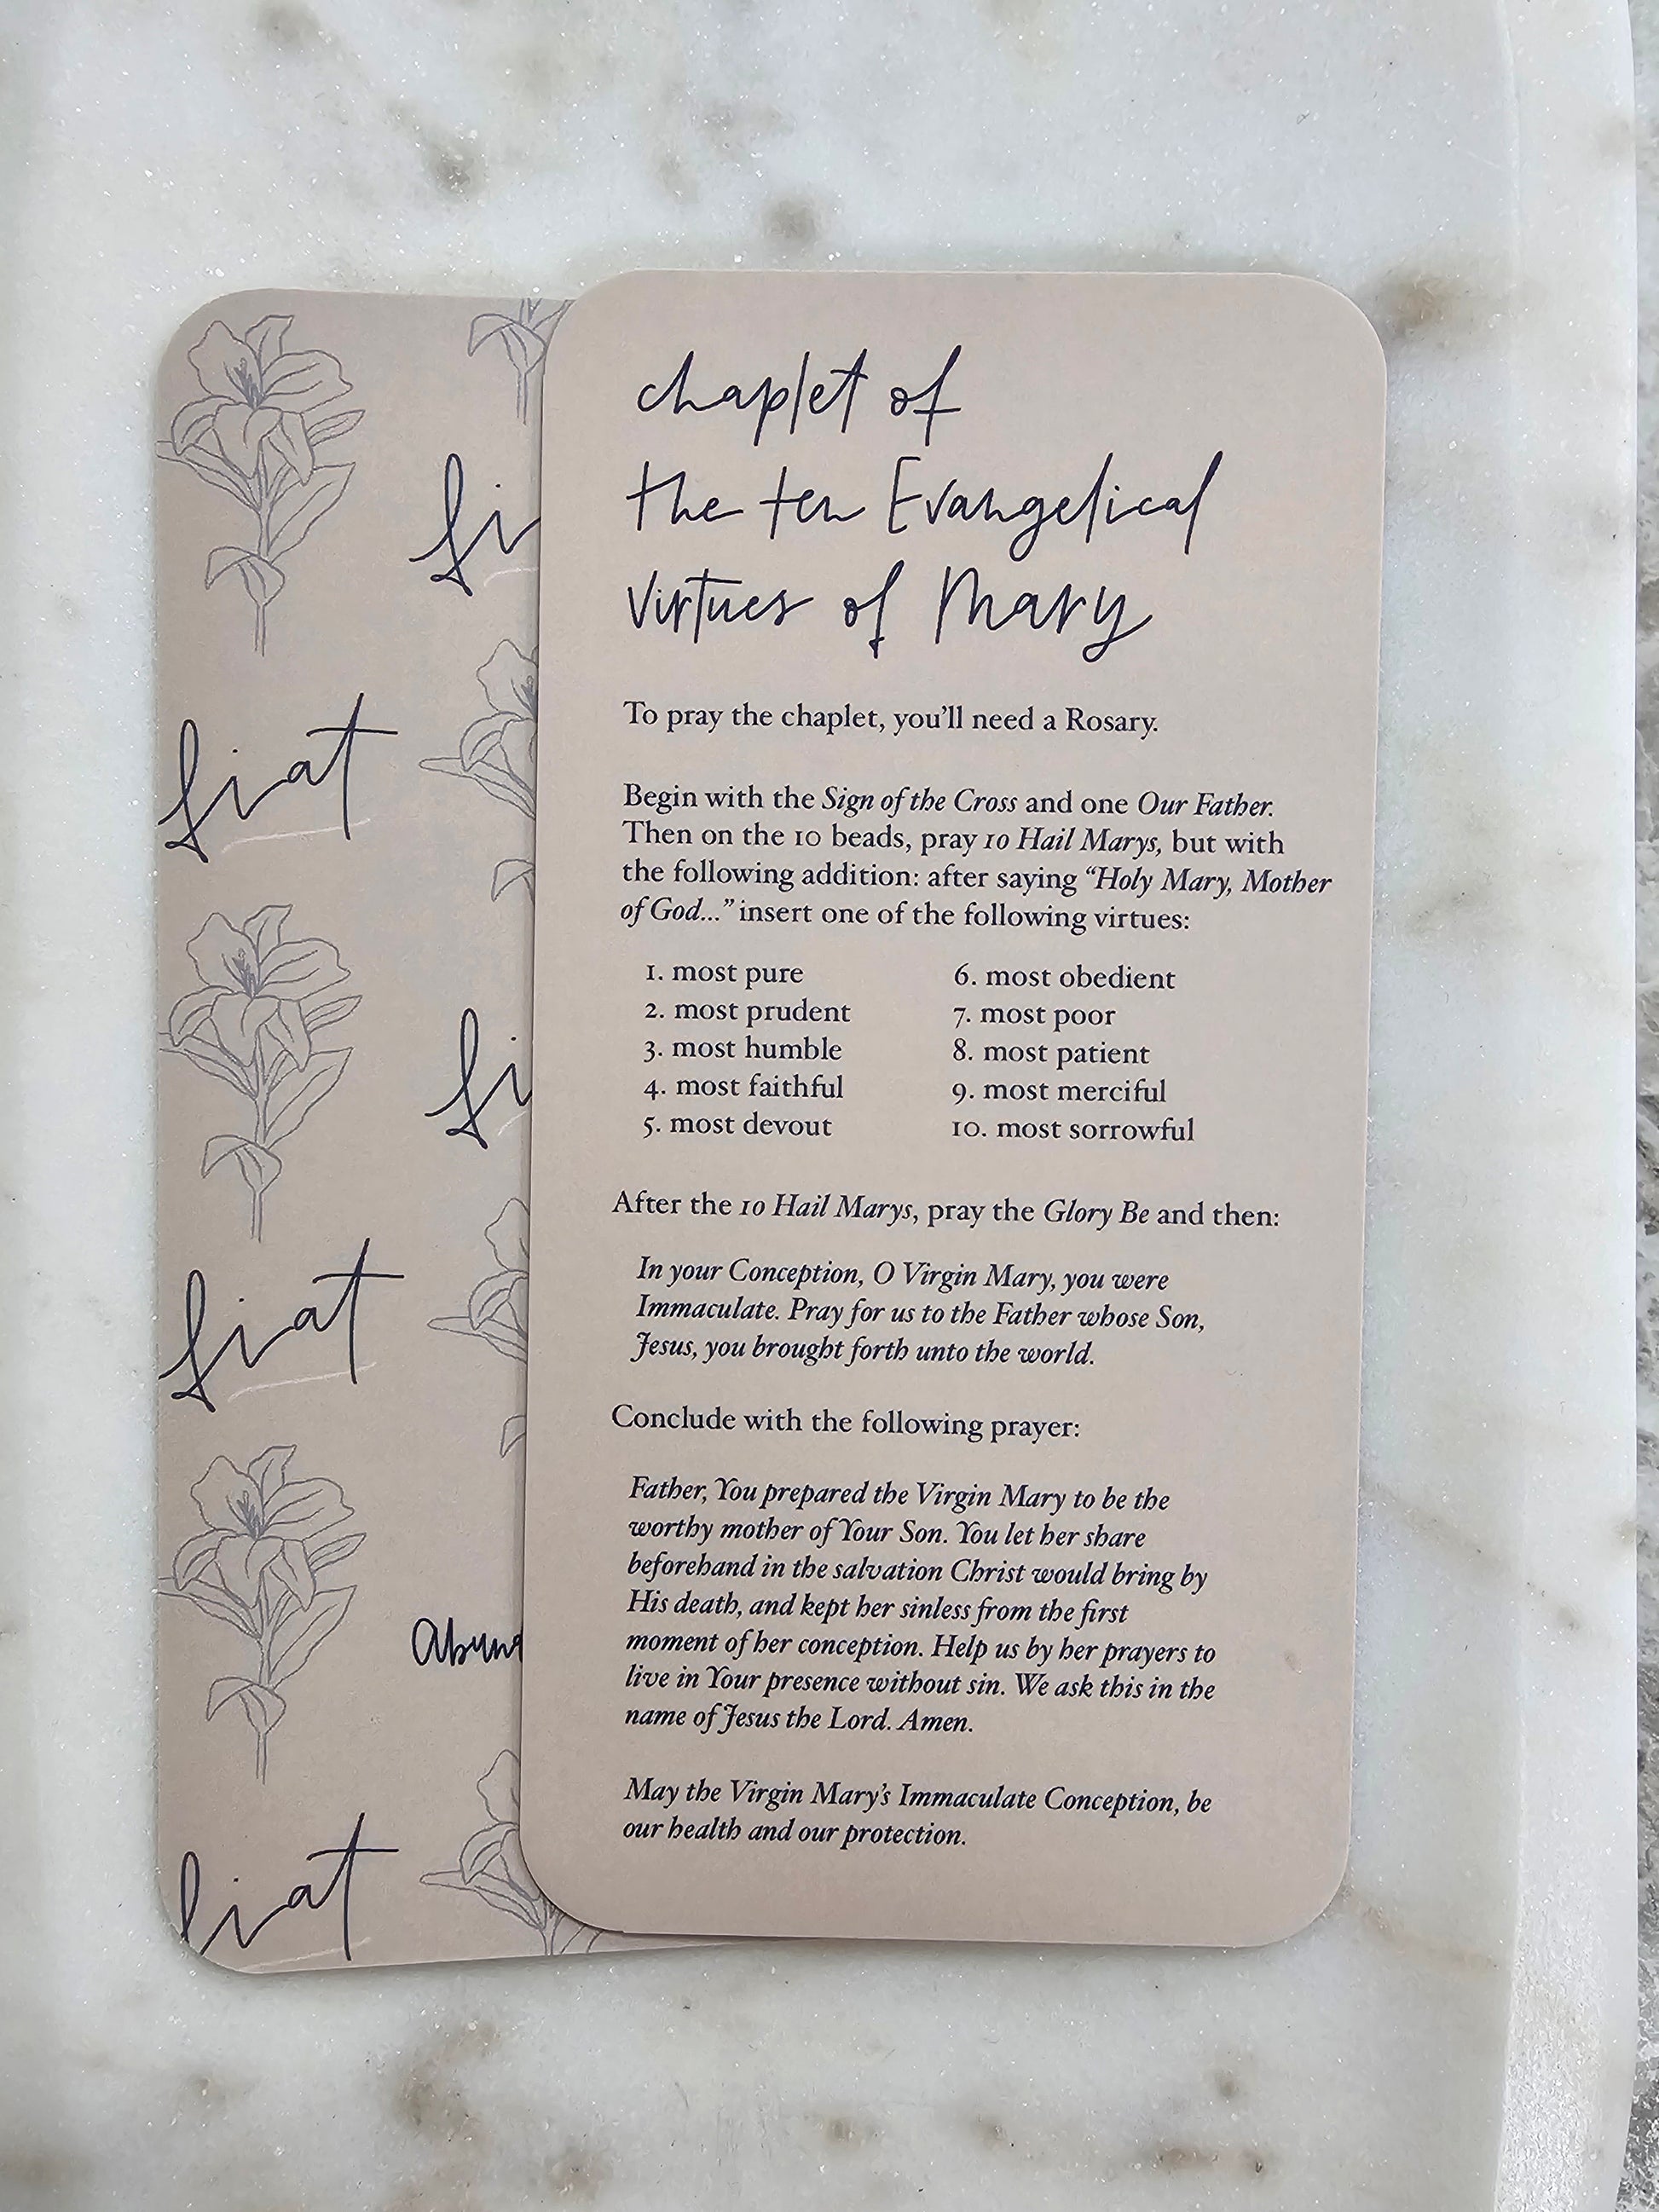 chaplet of
the ten Evangelical
virtues of Mary
To pray the chaplet, you'll need a Rosary.
Begin with the Sign of the Cross and one Our Father.
Then on the 10 beads, pray 10 Hail Marys, but with
the following addition: after saying “Holy Mary, Mother
of God...” insert one of the following virtues:
1. most pure
2. most prudent
3. most humble
4. most faithful
5. most devout
6. most obedient
7. most poor
8. most patient
9. most merciful
10. most sorrowful
After the 10 Hail Marys, pray the Glory Be and then:
In your Conception, O Virgin Mary, you were
Immaculate. Pray for us to the Father whose Son,
Jesus, you brought forth unto the world.
Conclude with the following prayer:
Father, You prepared the Virgin Mary to be the
worthy mother of Your Son. You let her share
beforehand in the salvation Christ would bring by
His death, and kept her sinless from the first
moment of her conception. Help us by her prayers to
live in Your presence without sin. We ask this in the
name of Jesus the Lord. Amen.
May the Virgin Mary's Immaculate Conception, be
our health and our protection.
fiat
fiat
fiat